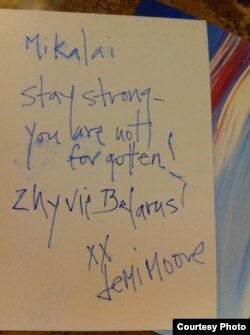 Mikalai
stay strong-
you are not
forgotten!
Zhyvie Belarus!
xx
Demi Moore
Courtesy Photo